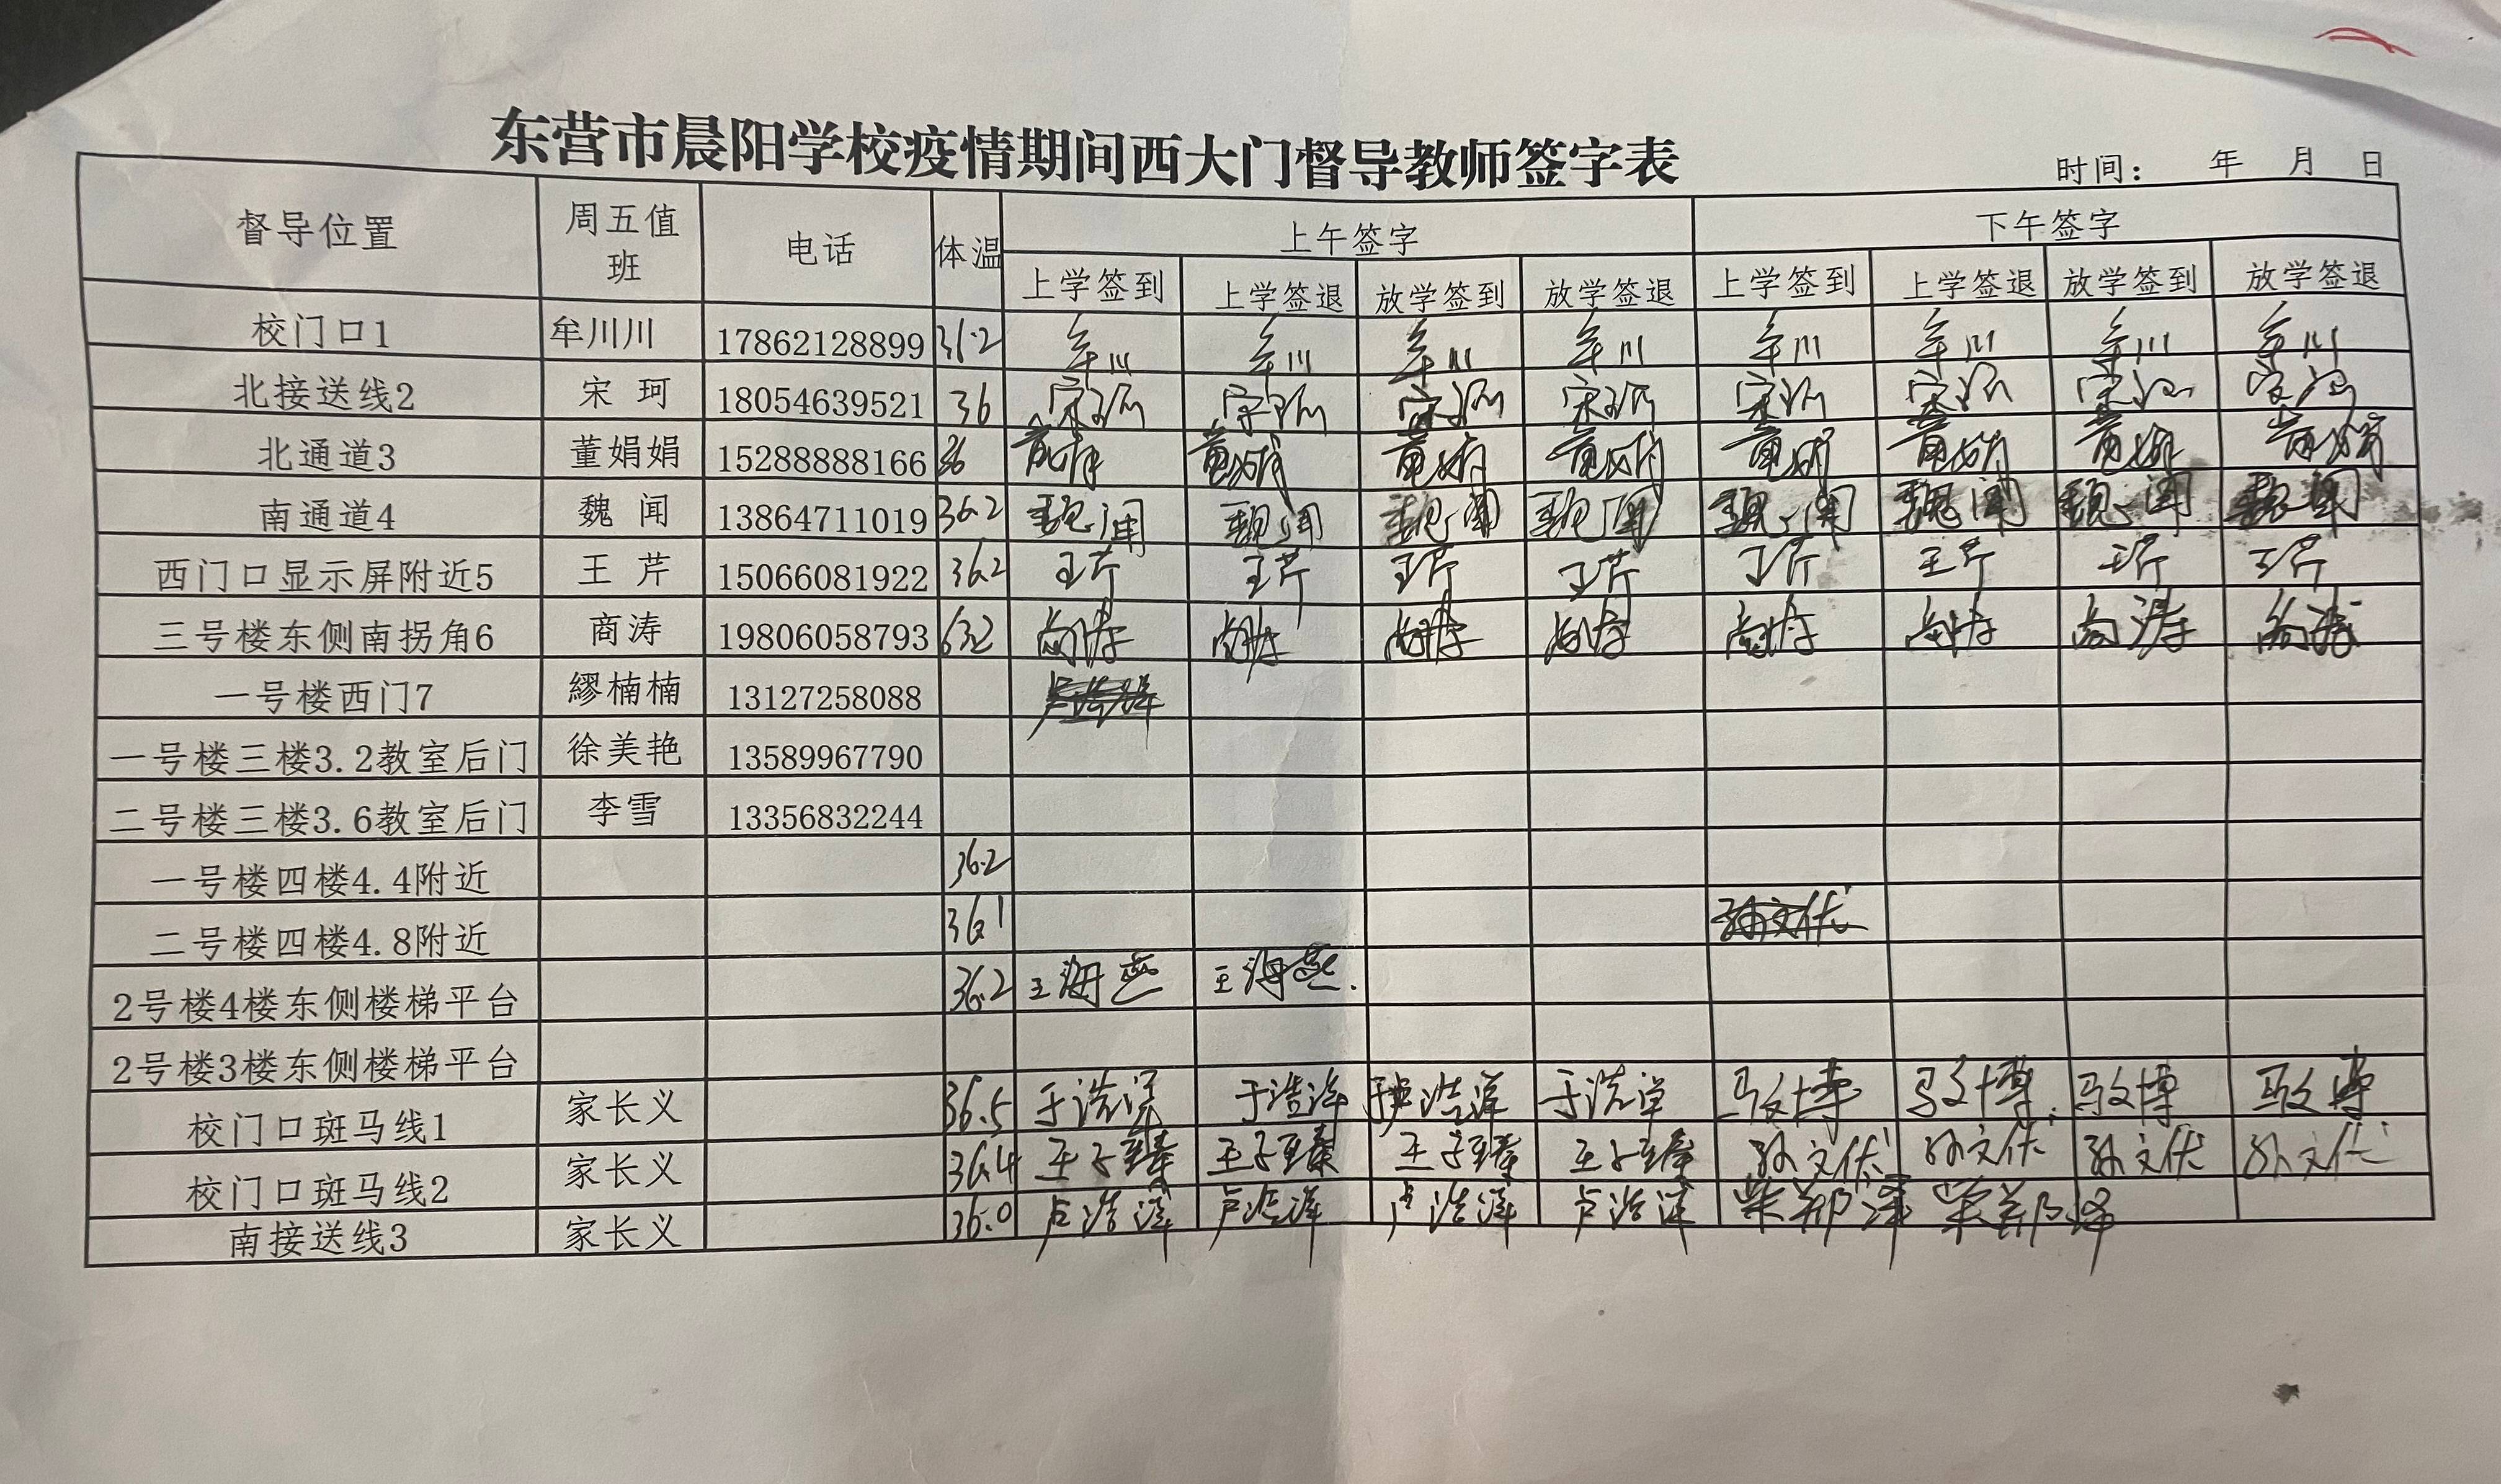 东营市晨阳学校疫情期间西大门督导教师签字表
时间： 年 月 日
督导位置 周五值班 电话 体温 上午签字 下午签字
上学签到 上学签退 放学签到 放学签退 上学签到 上学签退 放学签到 放学签退
校门口1 牟川川 17862128899 36.2 牟川 牟川 牟川 牟川 牟川 牟川 牟川 牟川
北接送线2 宋 珂 18054639521 36 宋珂 宋珂 宋珂 宋珂 宋珂 宋珂 宋珂 宋珂
北通道3 董娟娟 15288888166 36 董娟 董娟 董娟 董娟 董娟 董娟 董娟
南通道4 魏 闻 13864711019 36.2 魏闻 魏闻 魏闻 魏闻 魏闻 魏闻 魏闻 魏闻
西门口显示屏附近5 王 芹 15066081922 36.2 王芹 王芹 王芹 王芹 王芹 王芹 王芹 王芹
三号楼东侧南拐角6 商涛 19806058793 商涛 商涛 商涛 商涛 商涛 商涛 商涛 商涛
一号楼西门7 繆楠楠 13127258088
一号楼三楼3.2教室后门 徐美艳 13589967790
二号楼三楼3.6教室后门 李雪 13356832244
一号楼四楼4.4附近 36.2
二号楼四楼4.8附近 36.1
2号楼4楼东侧楼梯平台 36.2 王海燕 王海燕.
2号楼3楼东侧楼梯平台
校门口斑马线1 家长义 36.5 于浩洋 于浩洋 于浩洋 于浩洋 马文博 马文博 马文博 马文博
校门口斑马线2 家长义 36.4 王子臻 王子臻 王子臻 王子臻 孙文 孙文 孙文 孙文
南接送线3 家长义 36.0 卢浩泽 卢浩泽 卢浩泽 卢浩泽